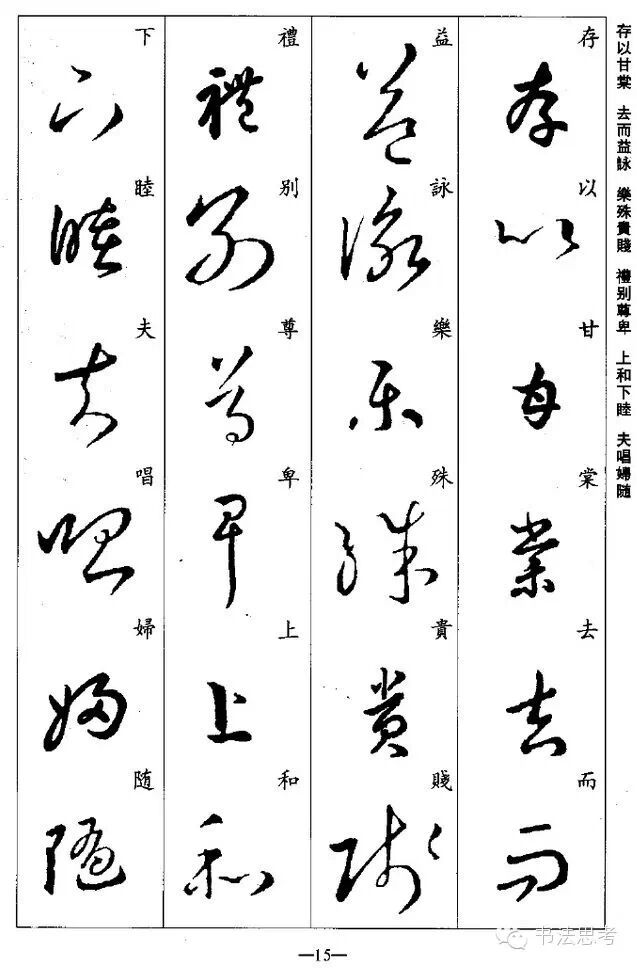 存以甘棠　去而益詠　樂殊貴賤　禮别尊卑　上和下睦　夫唱婦随
存
以
甘
棠
去
而
益
詠
樂
殊
貴
賤
禮
别
尊
卑
上
和
下
睦
夫
唱
婦
随
—15—
书法思考